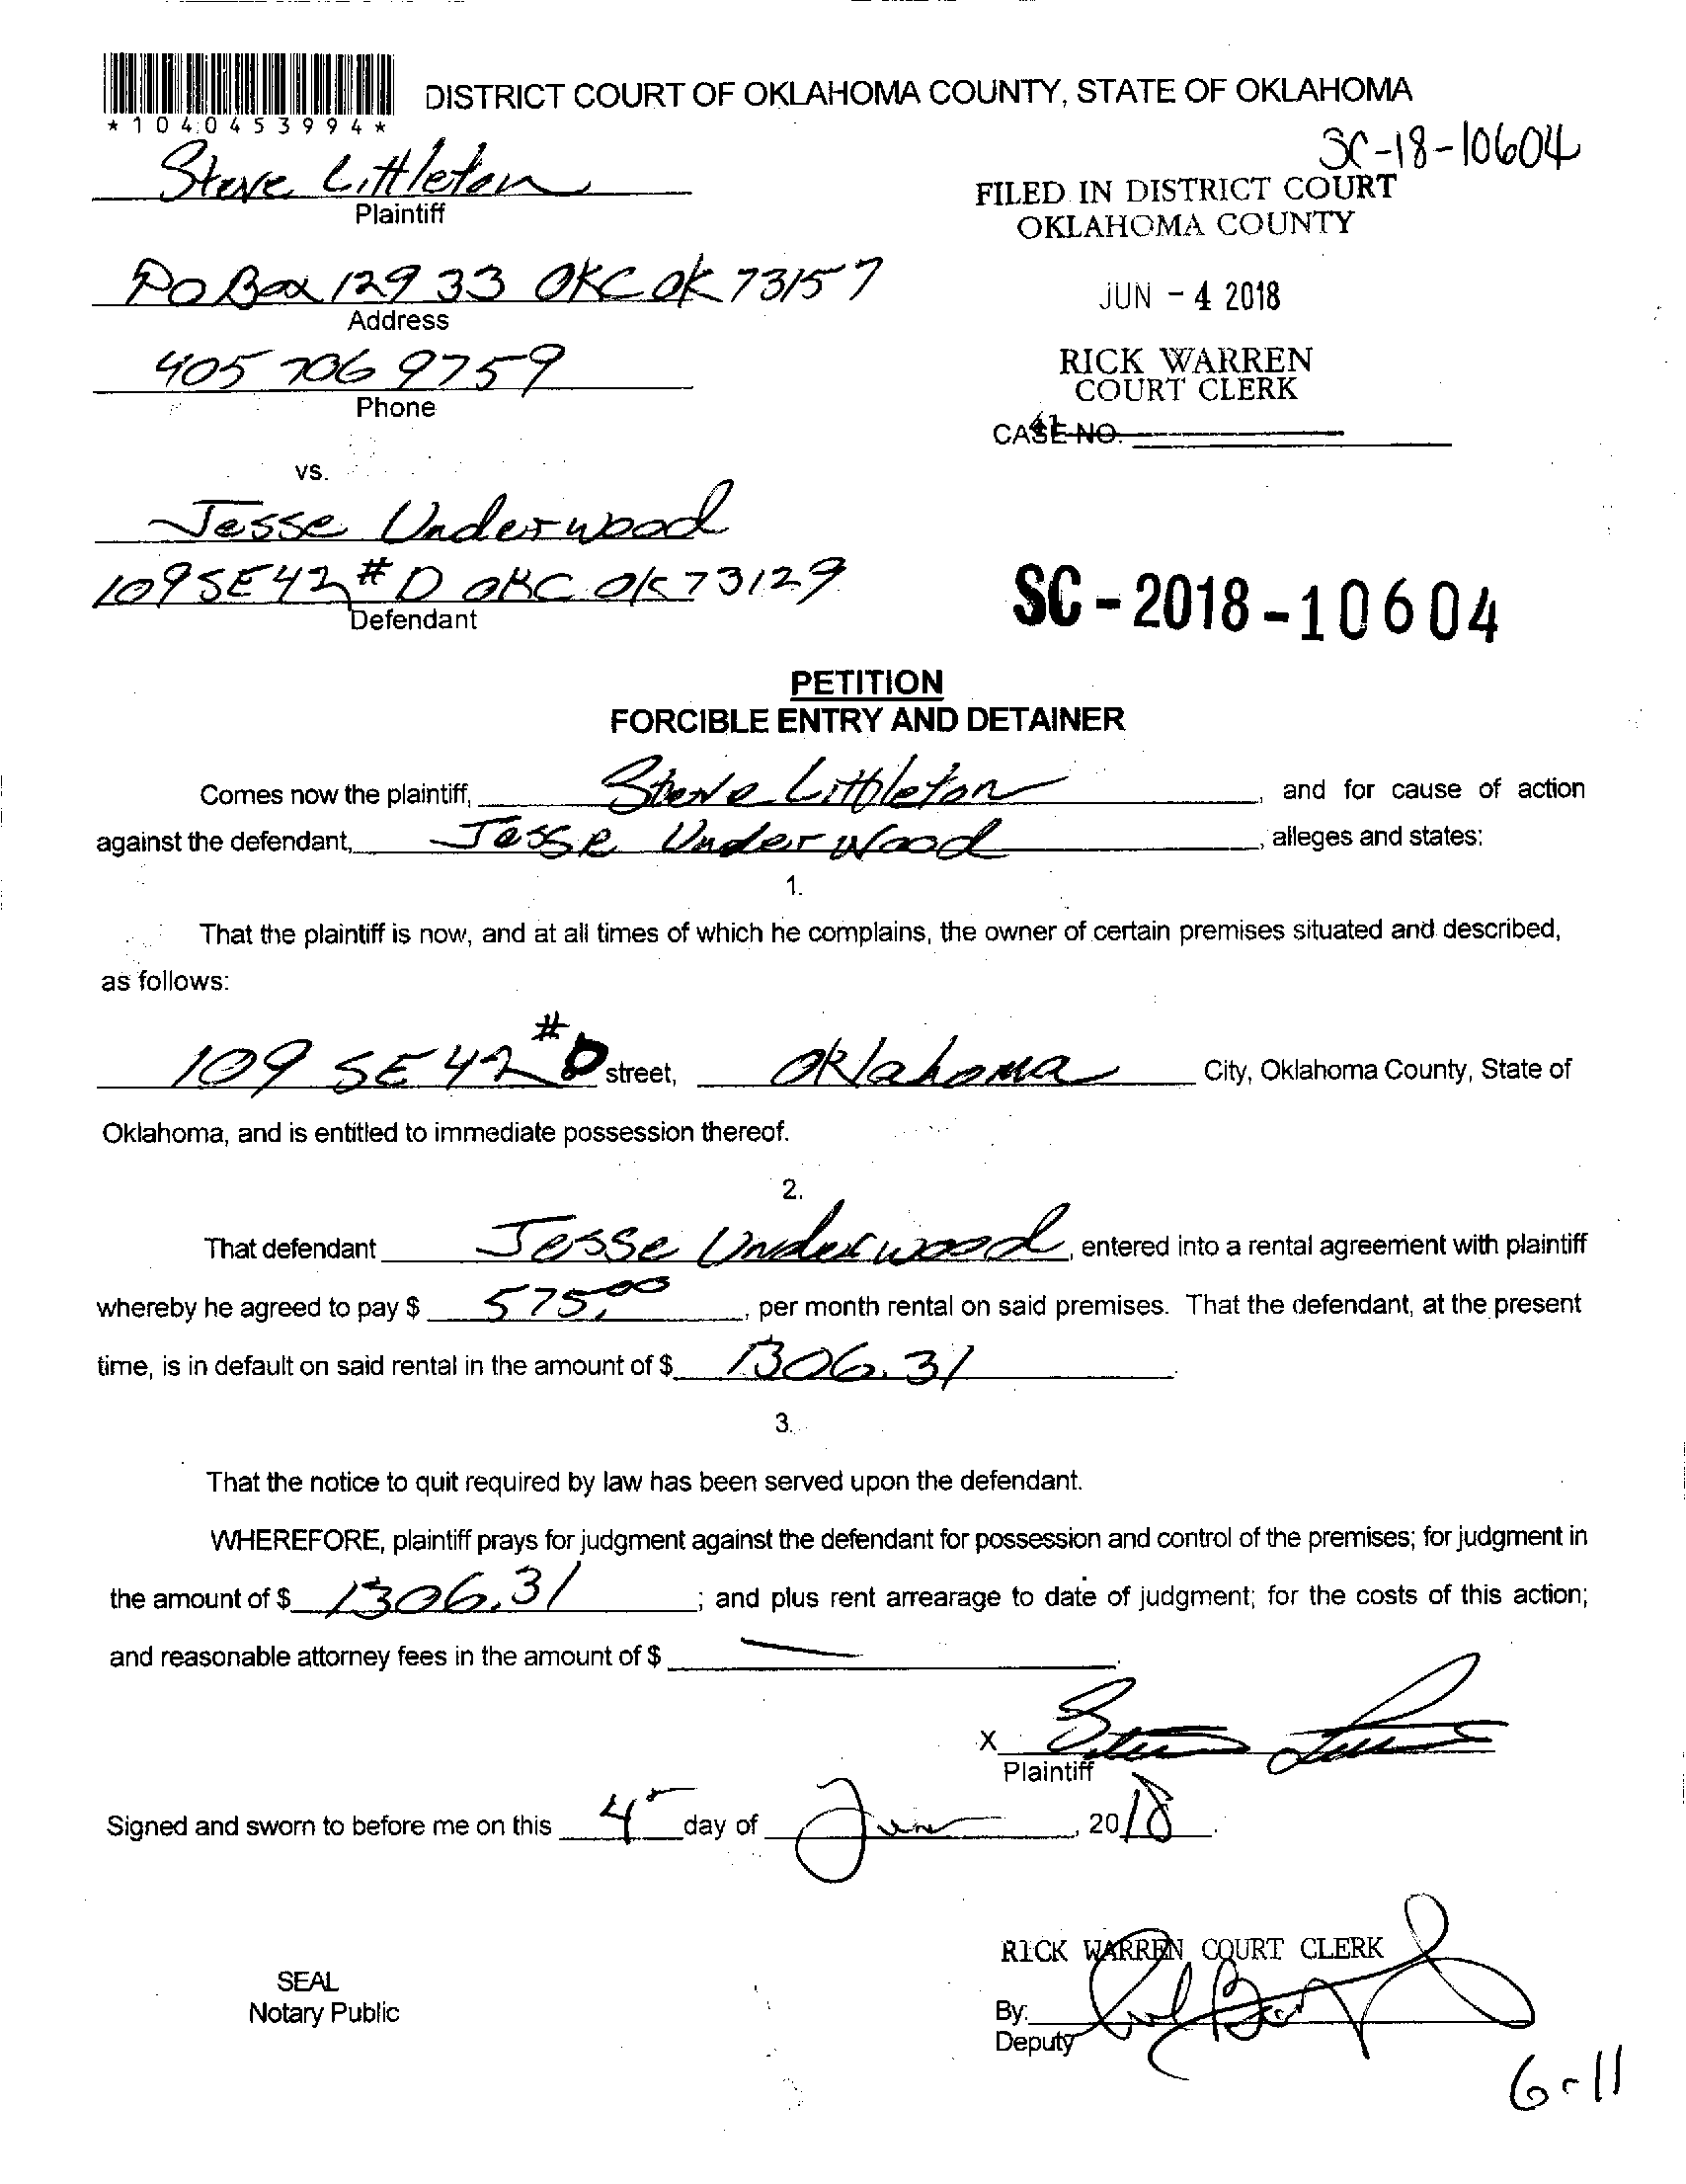 DISTRICT COURT OF OKLAHOMA COUNTY, STATE OF OKLAHOMA
*1040453994*
SC-18-10604
Steve Littleton
Plaintiff
FILED IN DISTRICT COURT
OKLAHOMA COUNTY
PO Box 12933 OKC OK 73157
Address
JUN - 4 2018
405 706 9759
Phone
RICK WARREN
COURT CLERK
41
CASE NO.
vs.
Jesse Underwood
109 SE 42 # D OKC OK 73129
Defendant
SC - 2018 - 10604
PETITION
FORCIBLE ENTRY AND DETAINER
Comes now the plaintiff, Steve Littleton, and for cause of action
against the defendant, Jesse Underwood, alleges and states:
1.
That the plaintiff is now, and at all times of which he complains, the owner of certain premises situated and described,
as follows:
109 SE 42 # D street, Oklahoma City, Oklahoma County, State of
Oklahoma, and is entitled to immediate possession thereof.
2.
That defendant Jesse Underwood, entered into a rental agreement with plaintiff
whereby he agreed to pay $ 575.00, per month rental on said premises. That the defendant, at the present
time, is in default on said rental in the amount of $ 1306.31.
3.
That the notice to quit required by law has been served upon the defendant.
WHEREFORE, plaintiff prays for judgment against the defendant for possession and control of the premises; for judgment in
the amount of $ 1306.31; and plus rent arrearage to date of judgment; for the costs of this action;
and reasonable attorney fees in the amount of $ —.
X
Plaintiff
Signed and sworn to before me on this 4 day of Jun, 2018.
RICK WARREN COURT CLERK
SEAL
Notary Public
By:
Deputy
6-11